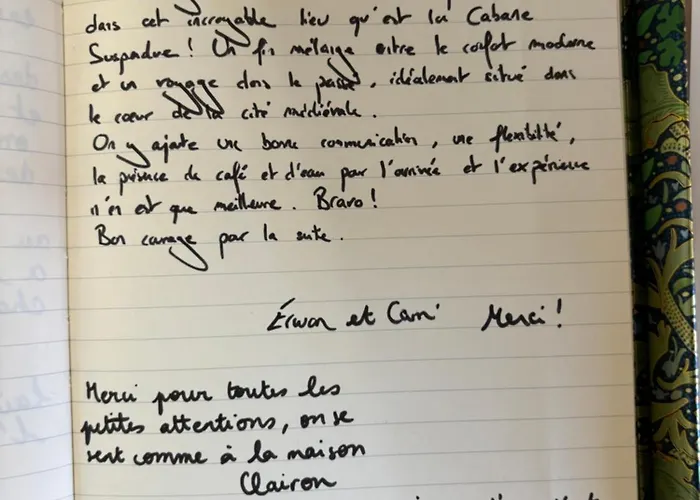 dans cet incroyable lieu qu'est la Cabane
Suspendue ! Un fin mélange entre le confort moderne
et un voyage dans le passé, idéalement situé dans
le cœur de la cité médiévale.
On y ajoute une bonne communication, une flexibilité,
la présence de café et d'eau pour l'arrivée et l'expérience
n'en est que meilleure. Bravo !
Bon courage pour la suite.
Erwan et Cam' Merci !
Merci pour toutes les
petites attentions, on se
sent comme à la maison
Clairon